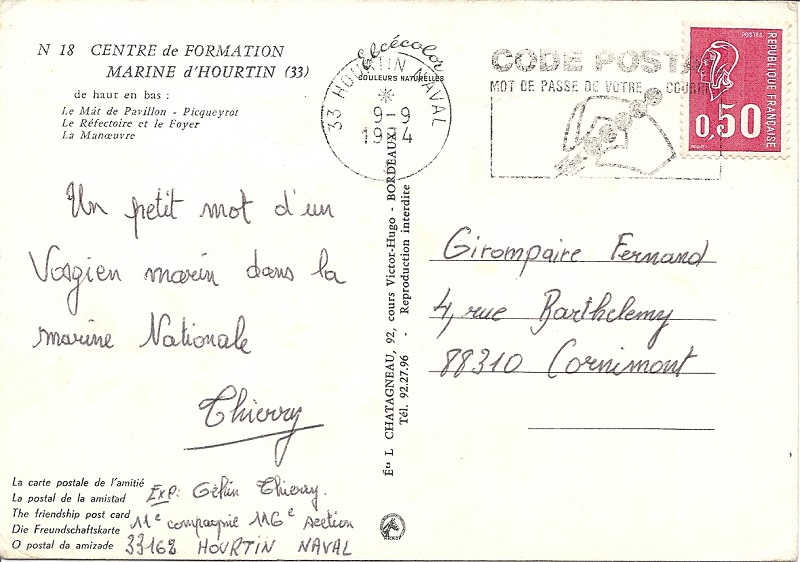 N 18 CENTRE de FORMATION
MARINE d'HOURTIN (33)
de haut en bas :
Le Mât de Pavillon - Picqueyrot
Le Réfectoire et le Foyer
La Manœuvre
Un petit mot d'un
Vosgien marin dans la
marine Nationale
Thierry
La carte postale de l'amitié
La postal de la amistad
The friendship post card
Die Freundschaftskarte
O postal da amizade
Exp: Géhin Thierry.
11e compagnie 116e section
33162 HOURTIN NAVAL
elcécolor
COULEURS NATURELLES
33 HOURTIN NAVAL
9-9
1974
Éts L CHATAGNEAU, 92, cours Victor-Hugo - BORDEAUX
Tél. 92.27.96 - Reproduction interdite
CODE POSTAL
MOT DE PASSE DE VOTRE COURRIER
POSTES
REPUBLIQUE FRANÇAISE
0,50
Girompaire Fernand
4, rue Barthelemy
88310 Cornimont